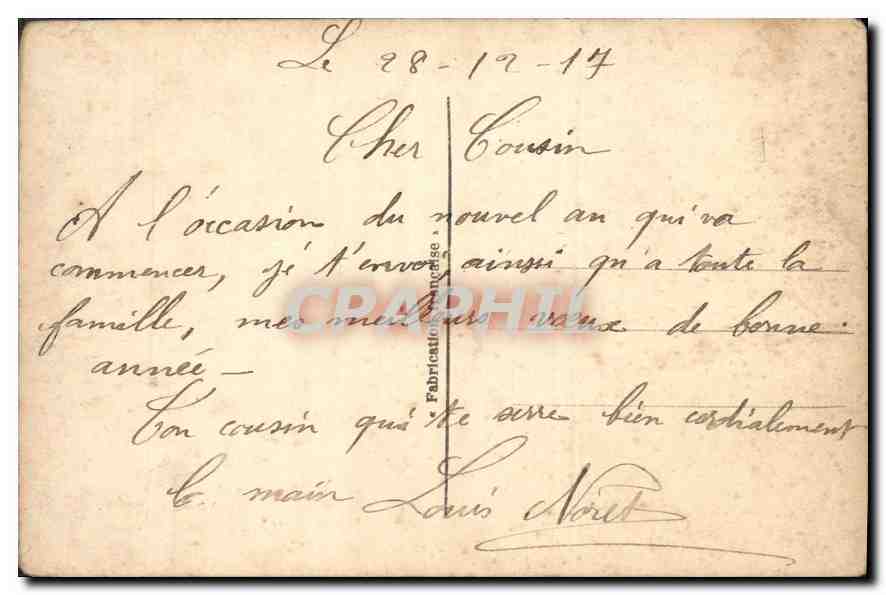 Le 28-12-17
Cher Cousin
A l'occasion du nouvel an qui va
commencer, je t'envoi ainsi qu'a toute la
famille, mes meilleurs vœux de bonne
année -
Ton cousin qui te serre bien cordialement
la main Louis Noret
« Fabrication Française »
CPAPHIL